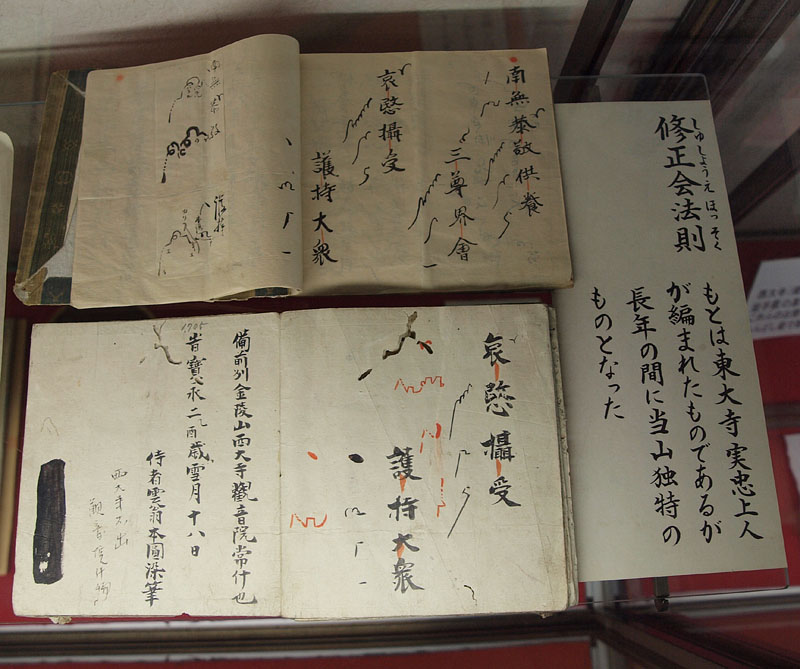 南無恭敬供養
三尊界會
哀愍攝受
護持大衆
南無恭敬
護持
しゅしょうえ ほっそく
修正会法則
もとは東大寺実忠上人
が編まれたものであるが
長年の間に当山独特の
ものとなった
哀愍攝受
護持大衆
備前州金陵山西大寺觀音院常什也
1705
旹寶永二乙酉歳雪月十八日
侍者雲翁本圓染筆